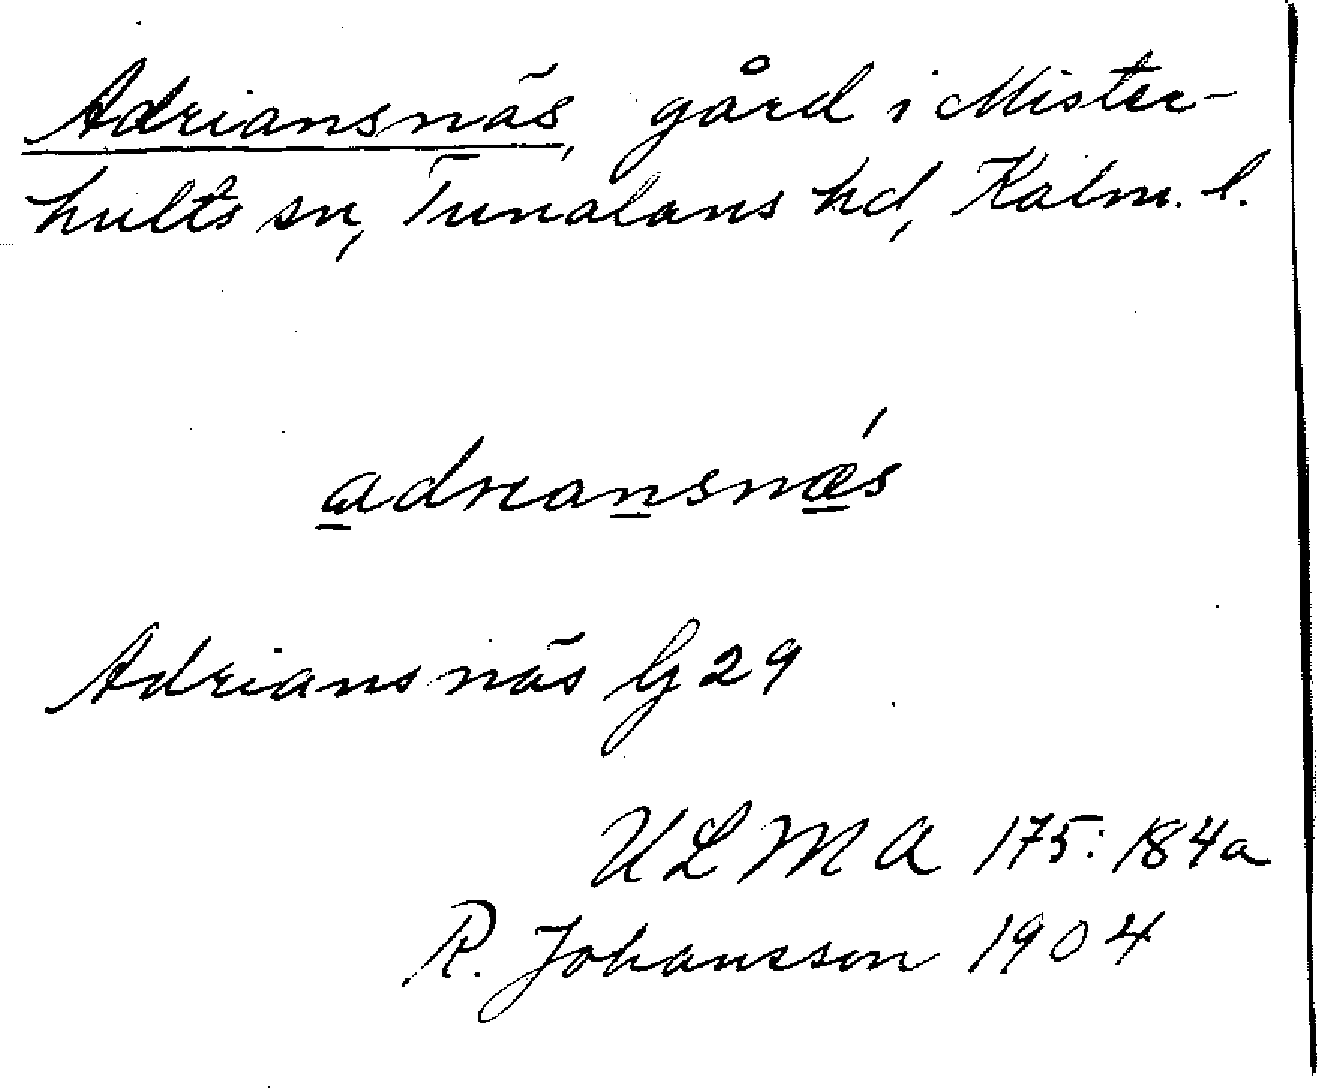 Adriansnäs, gård i Mister-
hults sn, Tunaläns hd, Kalm. l.
adriansnæ´s
Adriansnäs G 29
ULMA 175:184a
R. Johansson 1904